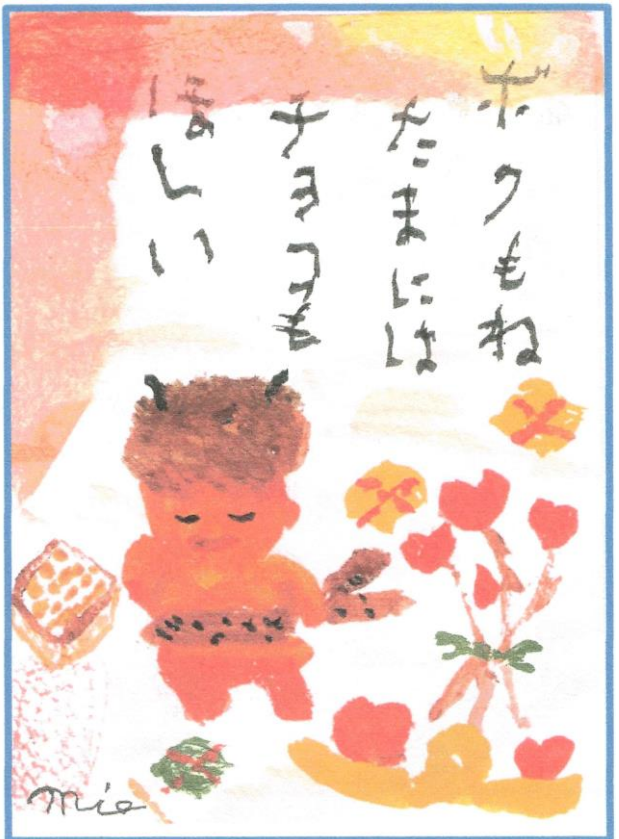 ボクもね
たまには
チョコも
ほしい
Mie